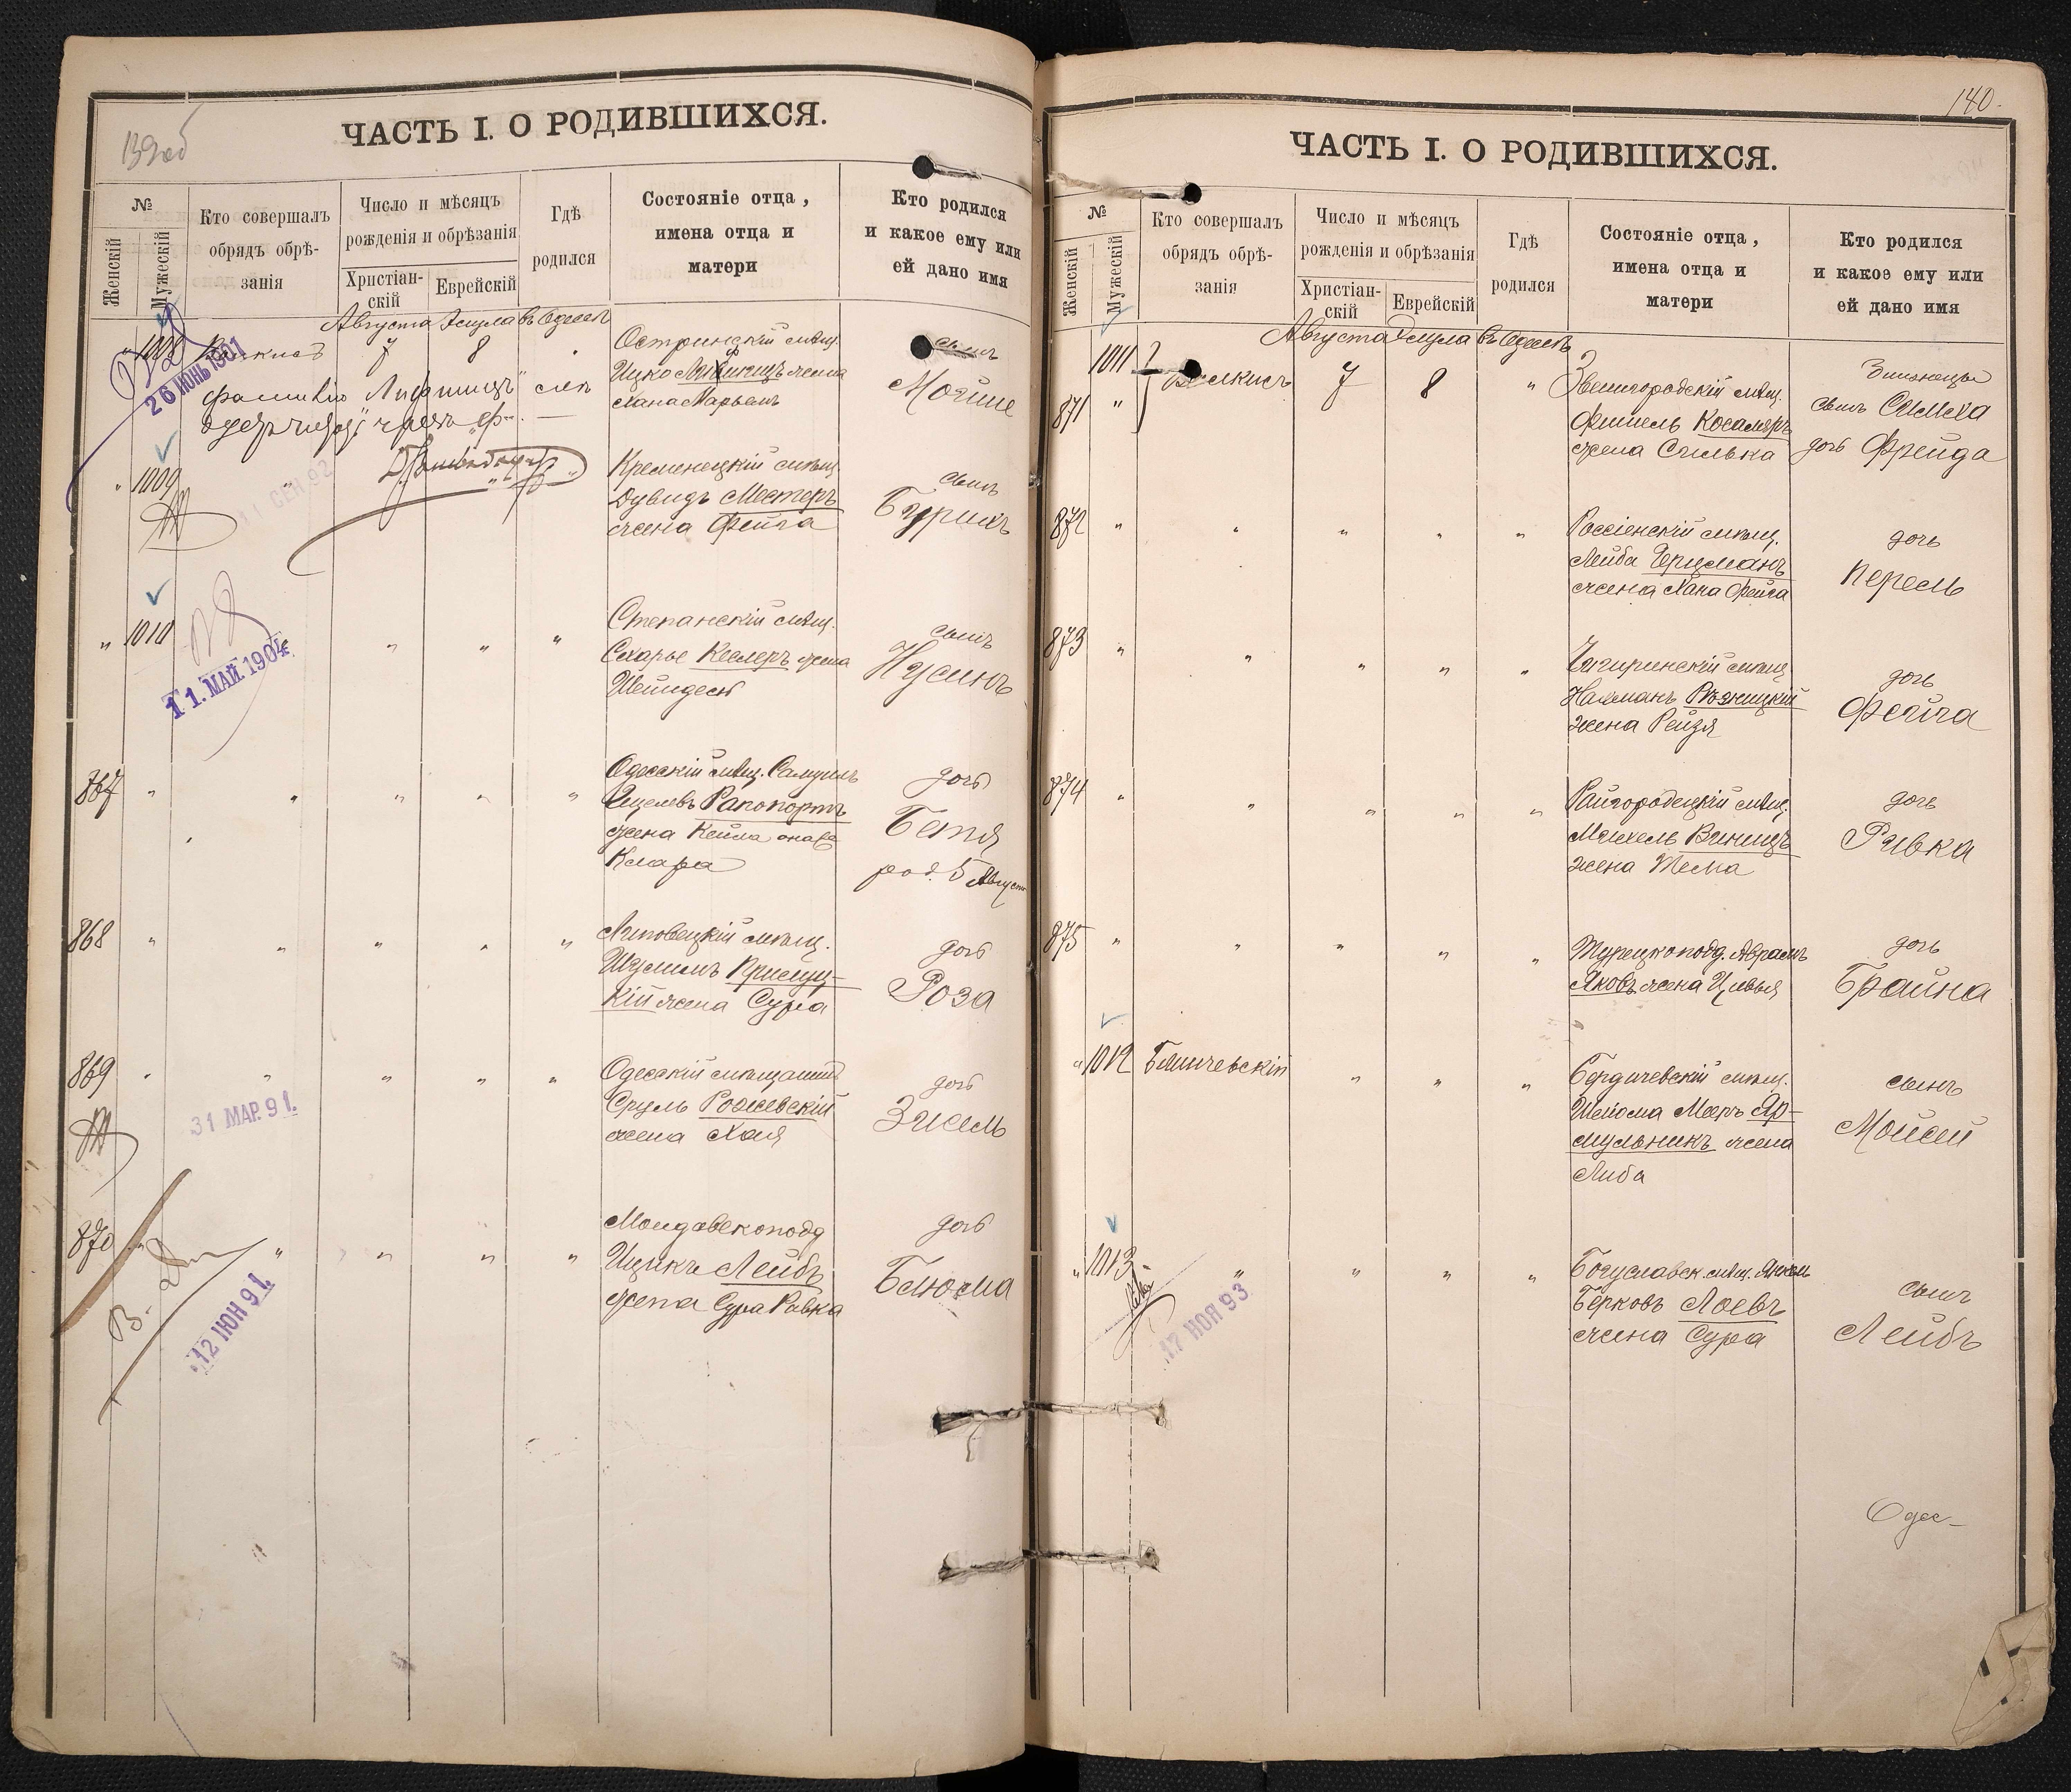 139об
ЧАСТЬ I. О РОДИВШИХСЯ.
№
Женскій
Мужескій
Кто совершалъ
обрядъ обрѣ-
занія
Число и мѣсяцъ
рожденія и обрѣзанія
Христіан-
скій
Еврейскій
Гдѣ
родился
Состояніе отца,
имена отца и
матери
Кто родился
и какое ему или
ей дано имя
Августа Элула въ Одессѣ
" 1008
7 8 "
Остринскій мѣщ.
Ицко жена
Хана Марьемъ
сынъ
Мойше
фамилію Лифшицъ
26 ІЮНЬ 1901
" 1009
11 СЕН 92
Кременецкій мѣщ.
Дувидъ Местеръ
жена Фейга
сынъ
Бурихъ
" 1010 " " "
11. МАЙ. 1904
Степанскій мѣщ.
Сахарье Кеслеръ жена
Шейндель
сынъ
Нусинъ
867 " " " " "
Одесскій мѣщ. Самуилъ
Ицелевъ Рапопортъ
жена Кейла она же
Клара
дочь
Бетя
род. 5 Августа
868 " " " " "
Липовецкій мѣщ.
Шулимъ Прилуц-
кій жена Сура
дочь
Роза
869 " " " " "
31 МАР. 91.
Одесскій мѣщанинъ
Сруль Рожевскій
жена Хая
дочь
Зисель
870 " " " " "
12 ІЮН 91.
Молдавскопод
Ицикъ Лейбъ
жена Сура Ривка
дочь
Блюма
140.
ЧАСТЬ I. О РОДИВШИХСЯ.
№
Женскій
Мужескій
Кто совершалъ
обрядъ обрѣ-
занія
Число и мѣсяцъ
рожденія и обрѣзанія
Христіан-
скій
Еврейскій
Гдѣ
родился
Состояніе отца,
имена отца и
матери
Кто родился
и какое ему или
ей дано имя
Августа Элула въ Одессѣ
1011
871 " 7 8 "
Звенигородскій мѣщ.
Фишель
жена Силька
Близнецы
сынъ Симха
дочь Фрейда
872 " " " " "
Россіенскій мѣщ.
Лейба Герцманъ
жена Хана Фейга
дочь
Перель
873 " " " " "
Чигиринскій мѣщ
Нахманъ Ружицкій
жена Рейзя
дочь
Фейга
874 " " " " "
Райгородецкій мѣщ.
Михель Виницъ
жена Тема
дочь
Ривка
875 " " " " "
Турецкопод. Абрамъ
Яковъ жена Цивья
дочь
Брайна
" 1012 Блинчевскій " " "
Бердичевскій мѣщ.
Шлома Мееръ Яр-
мульникъ жена
Либа
сынъ
Мойсей
" 1013 " " " "
17 НОЯ 93
Богуславск. мѣщ. Янкель
Берковъ Лоевъ
жена Сура
сынъ
Лейбъ
Одес-